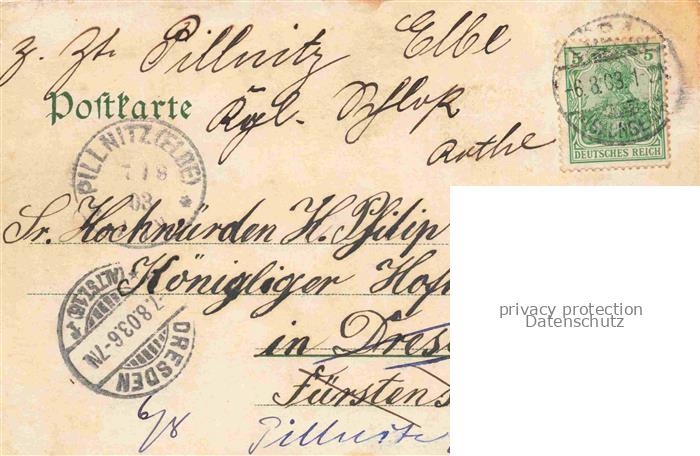 z. Zt. Pillnitz Elbe
Postkarte
Kgl. Schloß
5 5
-6.8.03.1-
DEUTSCHES REICH
PILLNITZ (ELBE)
7 8
03
Sr. Hochwürden H. Philip
Königliger Hof
in Dres
Fürstens
Pillnitz
6/8
(ALTST.16)
7.8.03.6-7N
DRESDEN
privacy protection
Datenschutz